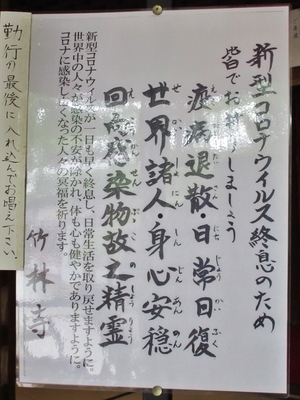 新型コロナウイルス終息のため
皆でお祈りしましょう
疫病退散・日常回復
世界諸人・身心安穏
回向感染物故之精霊
新型コロナウィルスが一日も早く終息し、日常生活を取り戻せますように。
世界中の人々が感染の不安が除かれ、体も心も健やかでありますように。
コロナに感染し亡くなった人々の冥福を祈ります。
竹林寺
勤行の最後に入れ込んでお唱え下さい。